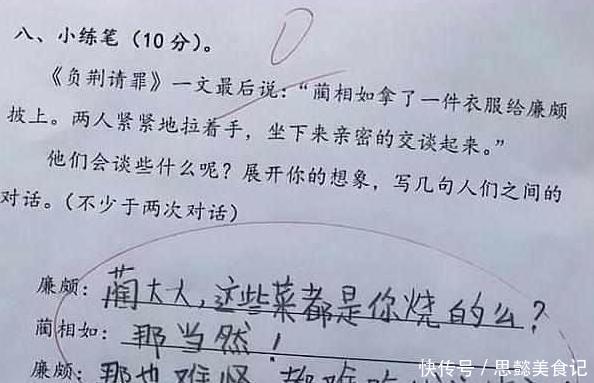 八、小练笔（10分）。
《负荆请罪》一文最后说：“蔺相如拿了一件衣服给廉颇
披上。两人紧紧地拉着手，坐下来亲密的交谈起来。”
他们会谈些什么呢？展开你的想象，写几句人们之间的
对话。（不少于两次对话）
廉颇：蔺大人，这些菜都是你烧的么？
蔺相如：那当然！
廉颇：那也难怪，都难吃
快传号／思懿美食记